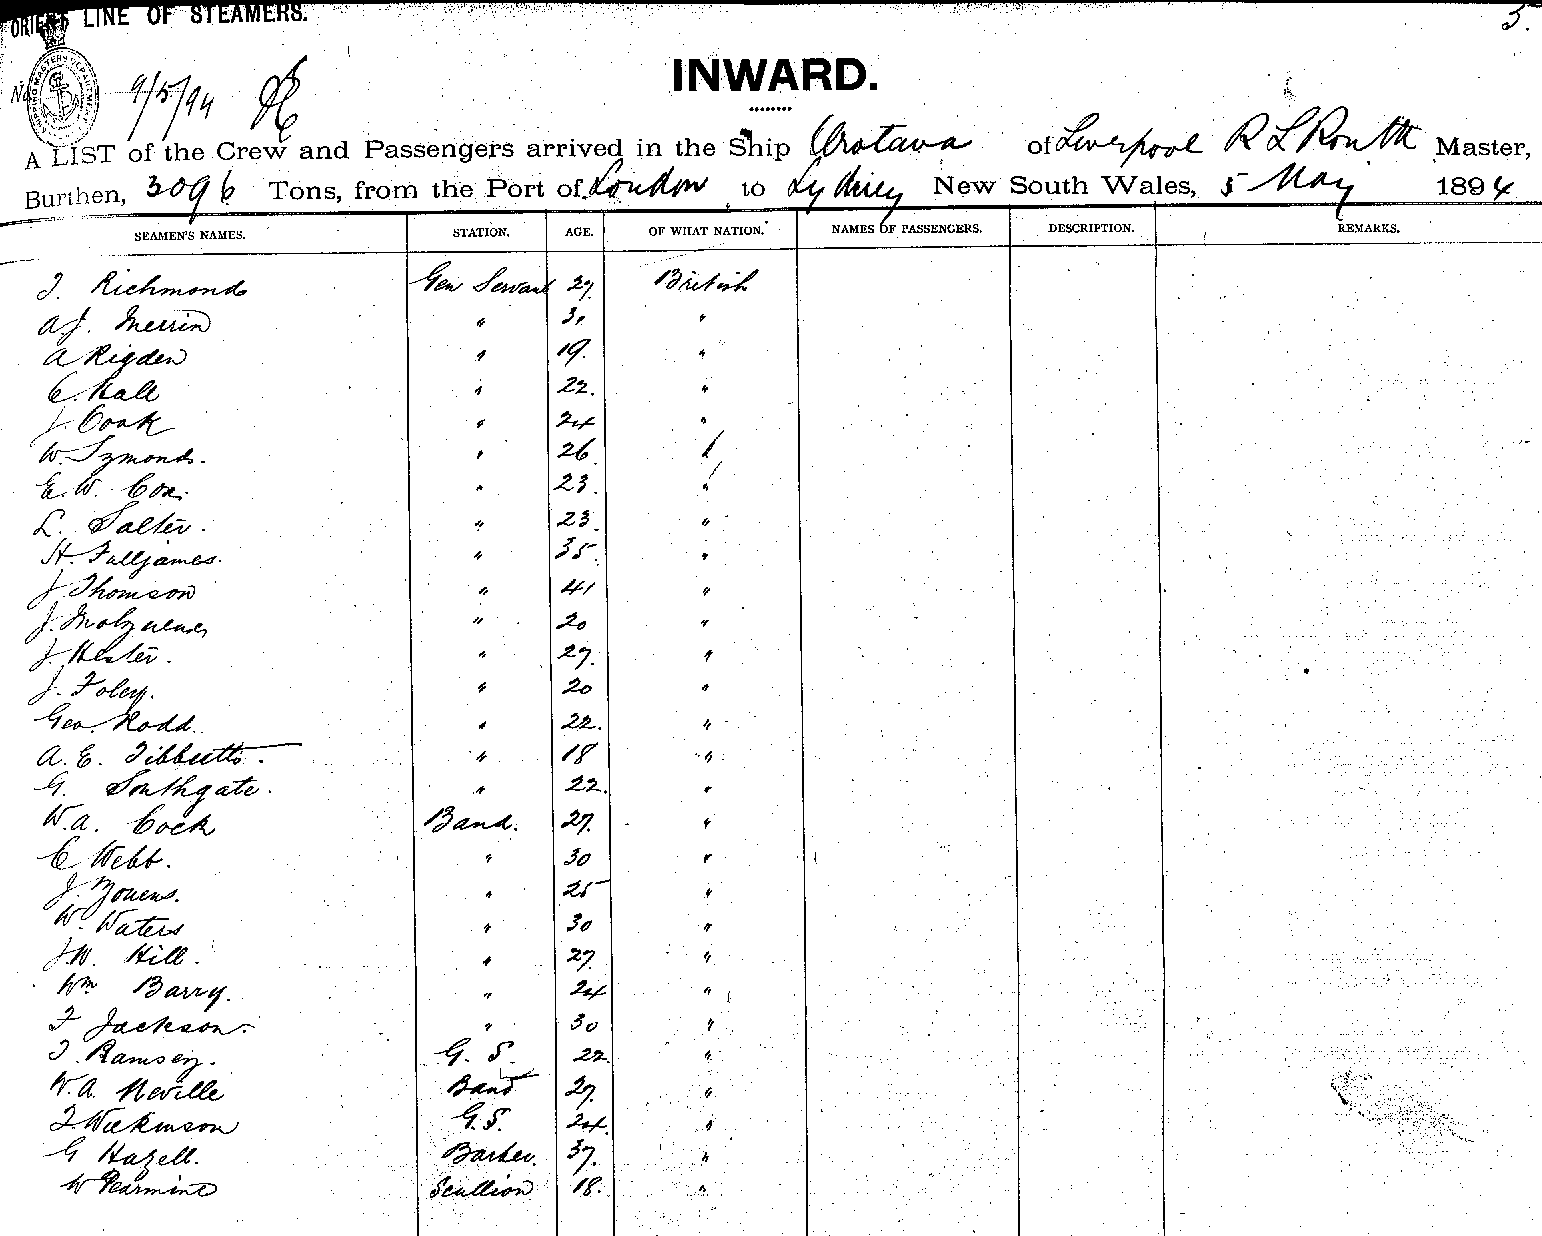 ORIENT LINE OF STEAMERS.
5.
INWARD.
No
9/5/94
A LIST of the Crew and Passengers arrived in the Ship Orotava of Liverpool R L Routh Master,
Burthen, 3096 Tons, from the Port of London to Sydney New South Wales, 5 May 1894
SEAMEN'S NAMES. STATION. AGE. OF WHAT NATION. NAMES OF PASSENGERS. DESCRIPTION. REMARKS.
J. Richmond Gen Servant 27. British
A J. Merrin " 31 "
A Rigden " 19. "
C. Hall " 22. "
J. Cook " 24 "
W. Symonds. " 26 "
E. W. Cox. " 23. "
L. Salter. " 23. "
H. Fulljames. " 35. "
J Thomson " 41 "
J. " 20 "
J Hester. " 27. "
J. Foley. " 20 "
Geo. Rodd. " 22. "
A. E. Tibbutts. " 18 "
G. Southgate. " 22. "
W. A. Cock Band. 27. "
C Webb. " 30 "
J. Youens. " 25 "
W. Waters " 30 "
J. W. Hill. " 27. "
Wm Barry. " 24 "
F Jackson. " 30 "
J. Ramsey. G. S. 22. "
W. A. Neville Band 27. "
J. Wilkinson G. S. 24. "
G Hazell. Barber. 37. "
W Pearmine Scullion 18. "